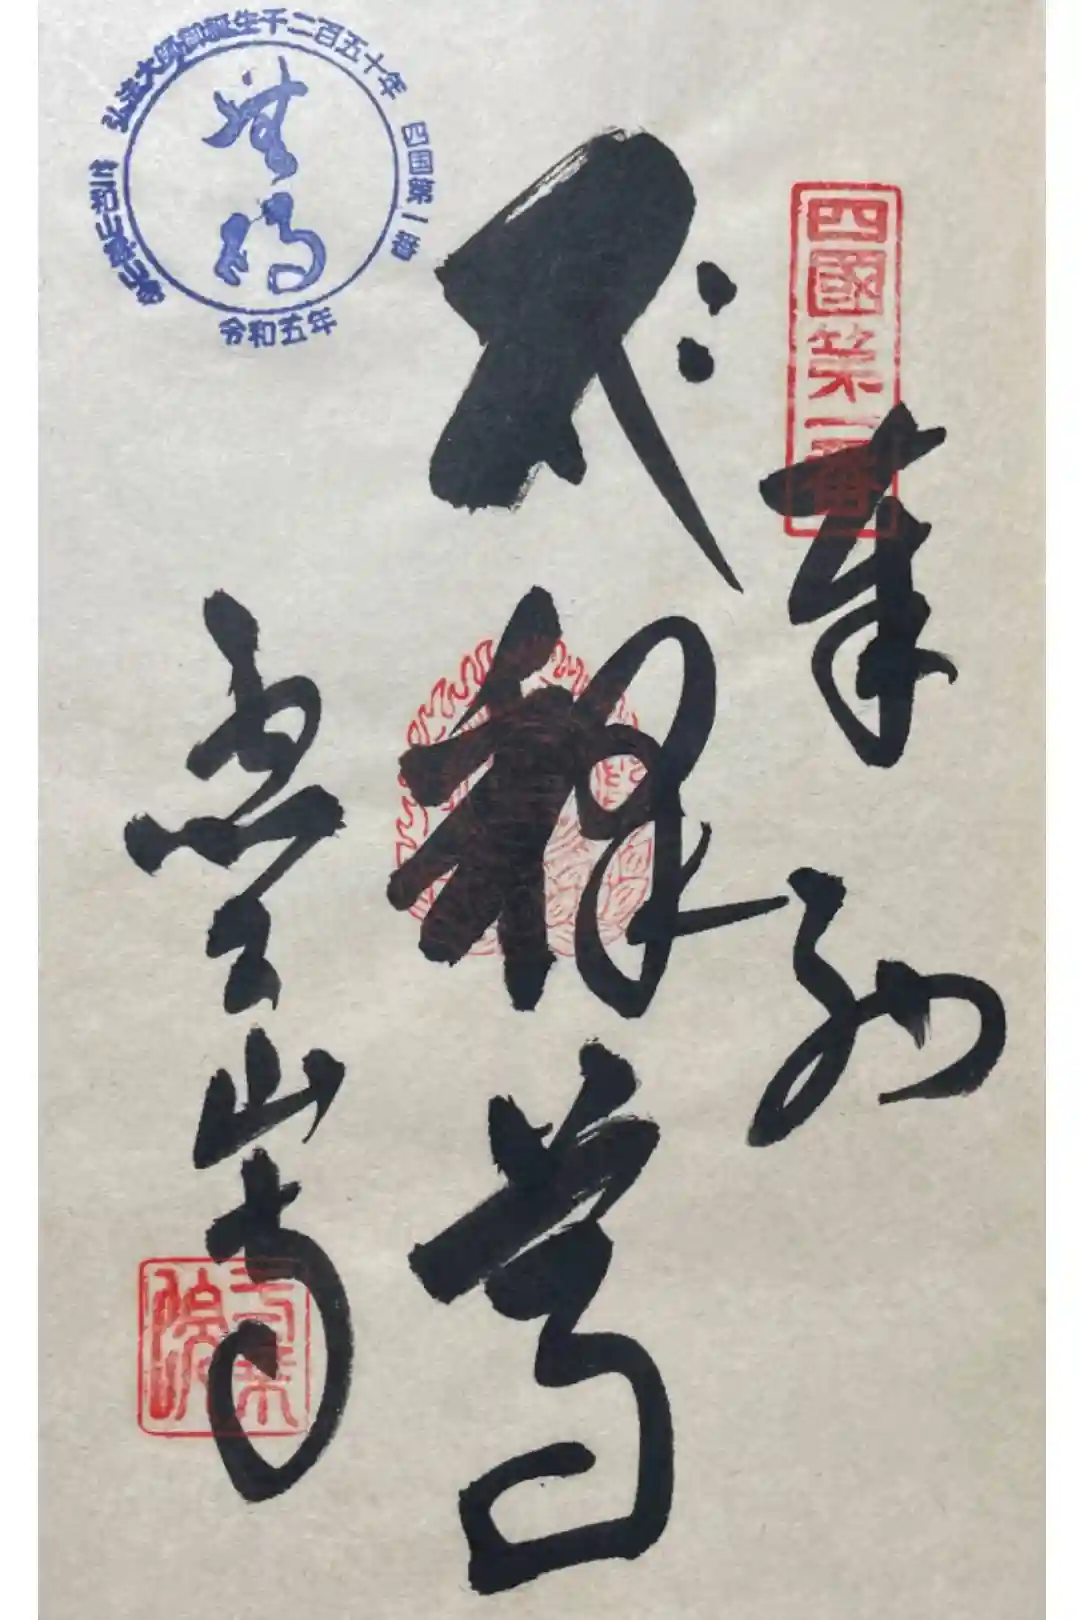 四國第一番
奉納
भः
釋尊
霊山寺
弘法大師御誕生千二百五十年
四国第一番
令和五年
竺和山霊山寺